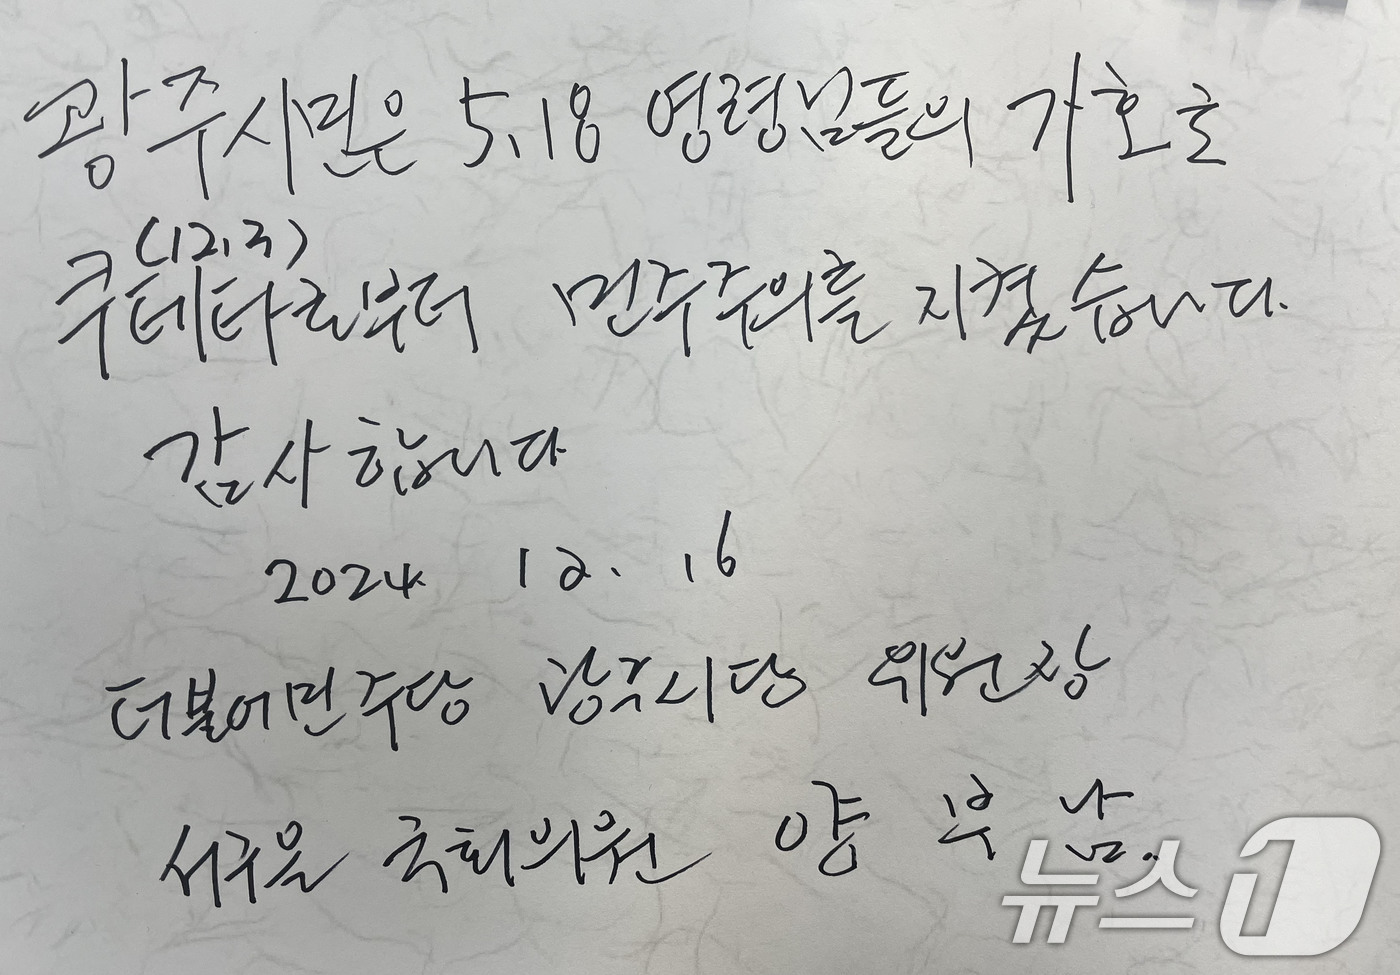 광주시민은 5.18 영령님들의 가호로
(12.3)
쿠테타로부터 민주주의를 지켰습니다.
감사합니다
2024. 12. 16
더불어민주당 광주시당 위원장
서구을 국회의원 양부남.
뉴스1